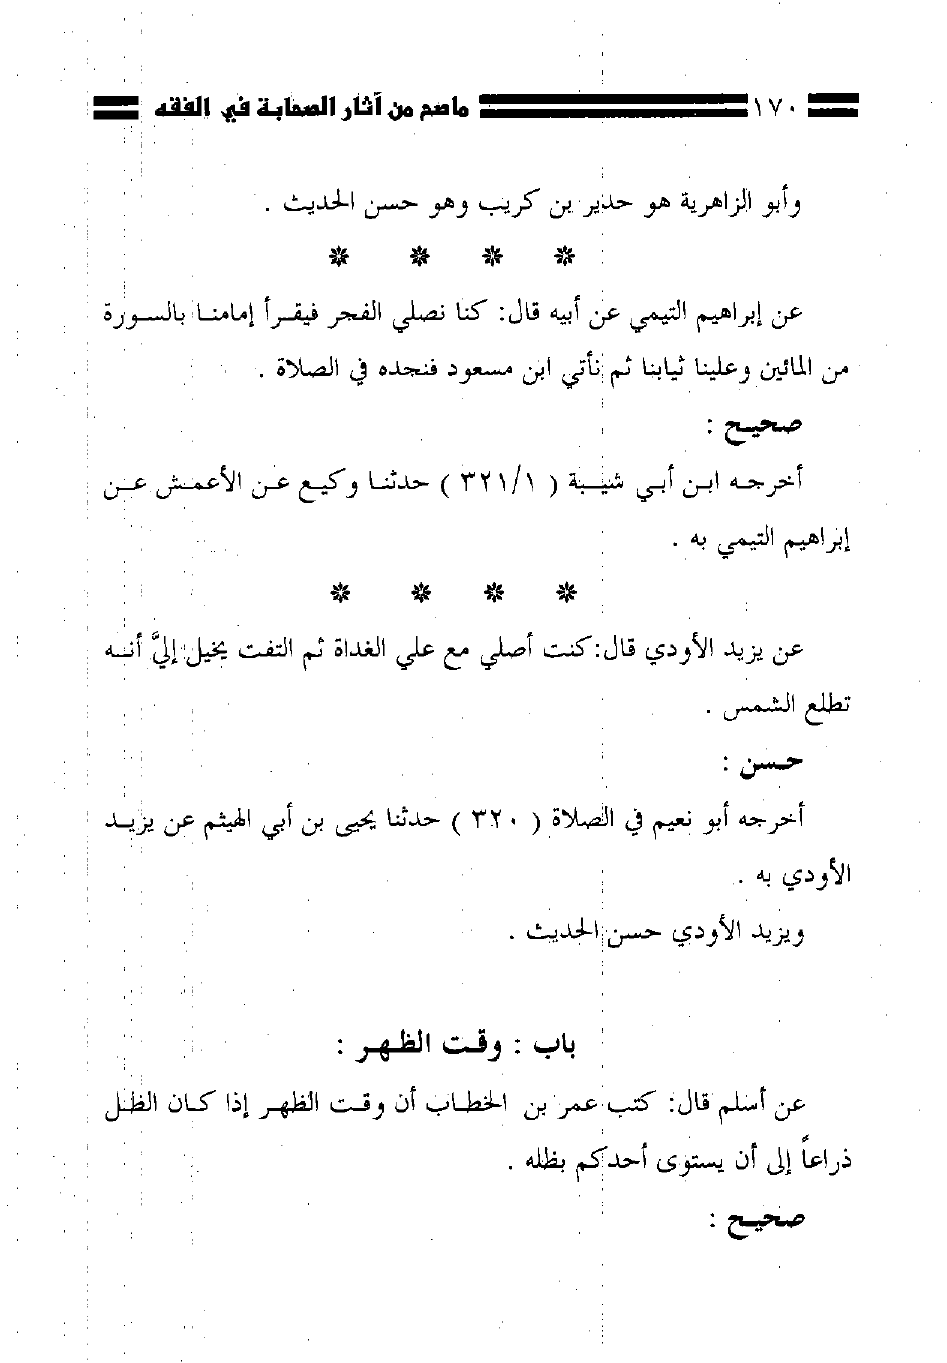 ١٧٠ ماصم من آثار الصحابة في الفقه
وأبو الزاهرية هو حدير بن كريب وهو حسن الحديث .
عن إبراهيم التيمي عن أبيه قال: كنا نصلي الفجر فيقرأ إمامنا بالسورة
من المائين وعلينا ثيابنا ثم نأتي ابن مسعود فنجده في الصلاة .
صحيح :
أخرجه ابن أبي شيبة ( ٣٢١/١ ) حدثنا وكيع عن الأعمش عن
إبراهيم التيمي به .
عن يزيد الأودي قال: كنت أصلي مع علي الغداة ثم التفت يخيل إليَّ أنه
تطلع الشمس .
حسن :
أخرجه أبو نعيم في الصلاة ( ٣٢٠ ) حدثنا يحيى بن أبي الهيثم عن يزيد
الأودي به .
ويزيد الأودي حسن الحديث .
باب : وقت الظهر :
عن أسلم قال: كتب عمر بن الخطاب أن وقت الظهر إذا كان الظل
ذراعاً إلى أن يستوى أحدكم بظله .
صحيح :